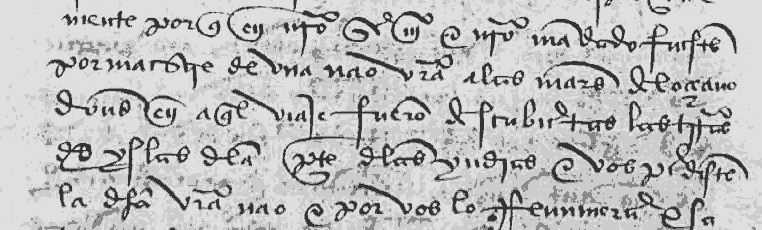 mente por q̃ en nr̃o seruiº e nr̃o mãdado fuestes
por maestre de vna nao vr̃a a las mares del oceano
donde en aq̃l viaje fuerõ descubiertas las trr̃as
e yslas de la pte de las yndias e vos perdistes
la dcha vr̃a nao e por vos lo remunerar e sa